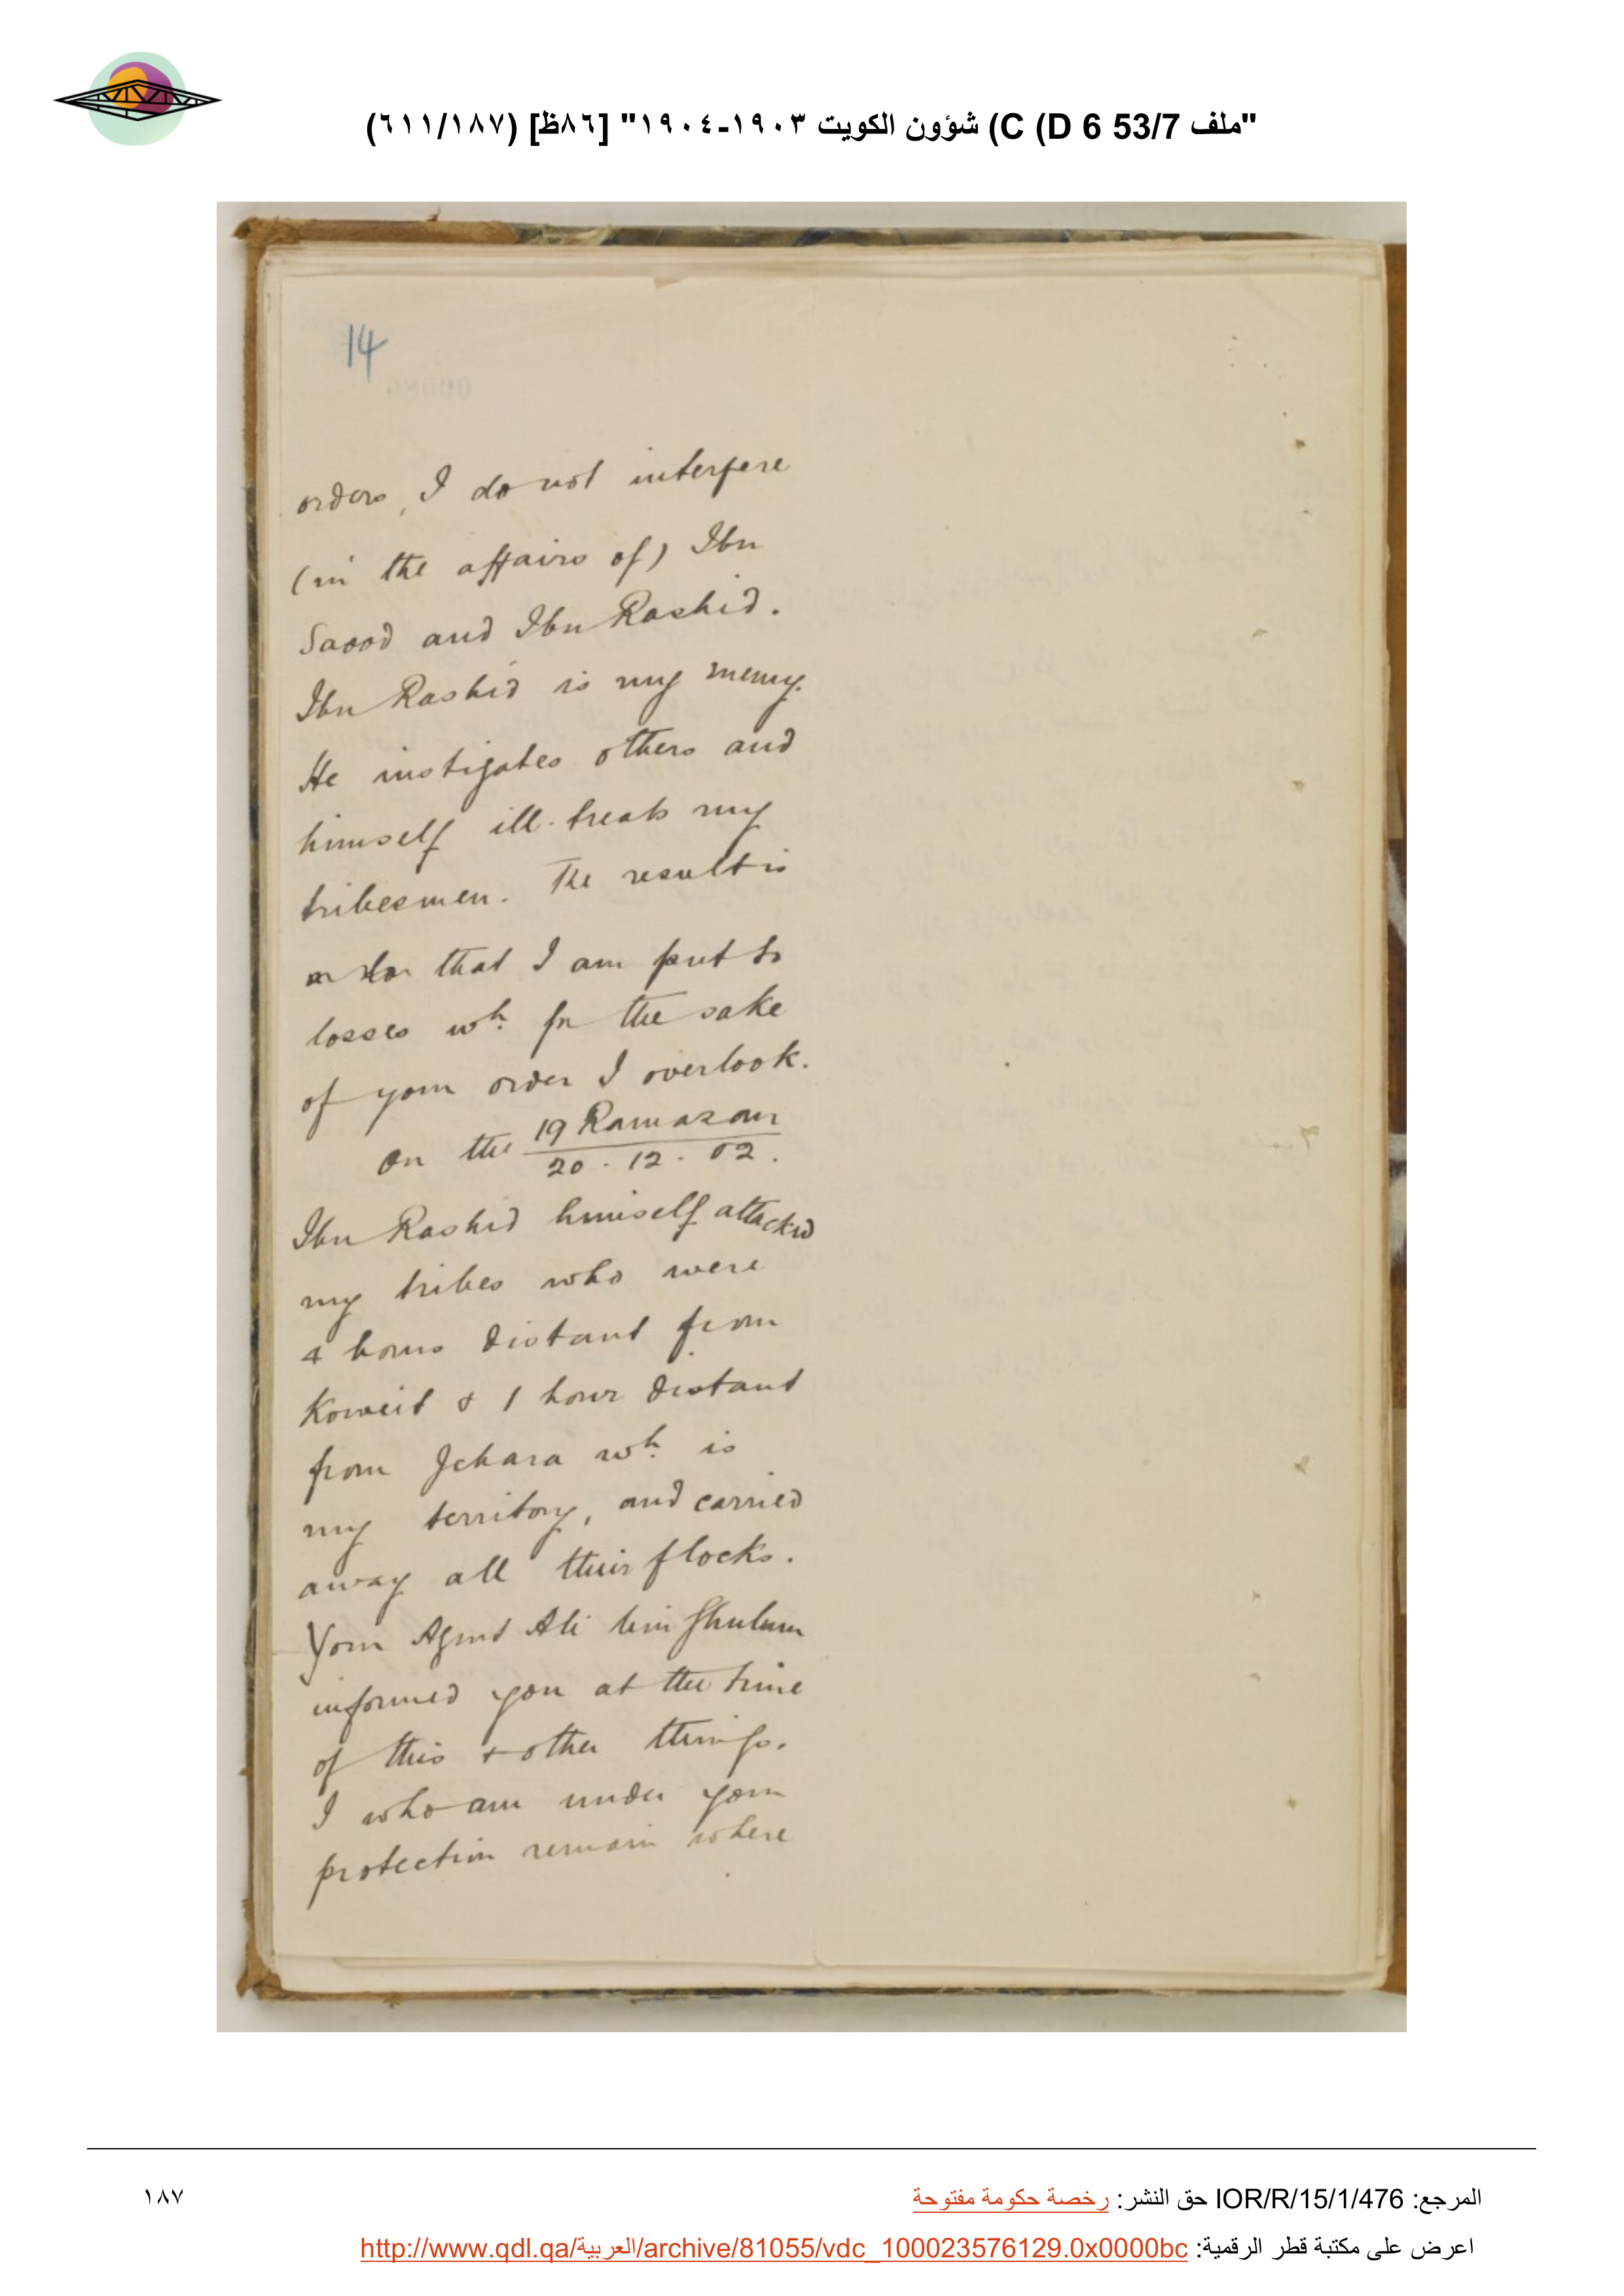 "ملف 53/7 C (D 6) شؤون الكويت ١٩٠٣-١٩٠٤" [٨٦ظ] (٦١١/١٨٧)
14
orders, I do not interfere
(in the affairs of) Ibn
Saood and Ibn Rashid.
Ibn Rashid is my enemy.
He instigates others and
himself ill-treats my
tribesmen. The result is
that I am put to
losses wh. for the sake
of your order I overlook.
On the 19 Ramazan
20 . 12 . 02.
Ibn Rashid himself attacked
my tribes who were
4 hours distant from
Koweit & 1 hour distant
from Jehara wh. is
my territory, and carried
away all their flocks.
Your Agent Ali bin Ghulum
informed you at the time
of this & other things.
I who am under your
protection remain where
المرجع: IOR/R/15/1/476 حق النشر: رخصة حكومة مفتوحة
١٨٧
اعرض على مكتبة قطر الرقمية: http://www.qdl.qa/العربية/archive/81055/vdc_100023576129.0x0000bc